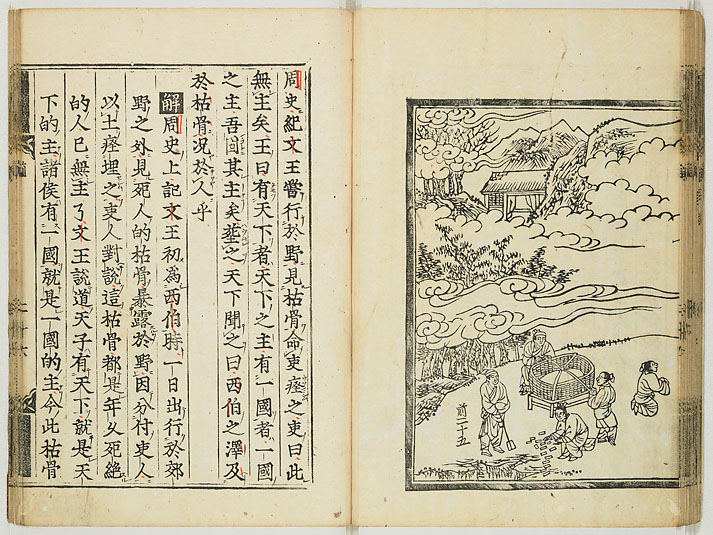 周史紀文王嘗行於野見枯骨命吏瘞之吏曰此
無主矣王曰有天下者天下之主有一國者一國
之主吾固其主矣葬之天下聞之曰西伯之澤及
於枯骨況於人乎
解周史上記文王初為西伯時一日出行於郊
野之外見死人的枯骨暴露於野因分付吏人
以土瘞埋之吏人對說這枯骨都是年久死絕
的人已無主了文王說道天子有天下就是天
下的主諸侯有一國就是一國的主今此枯骨
前二十五